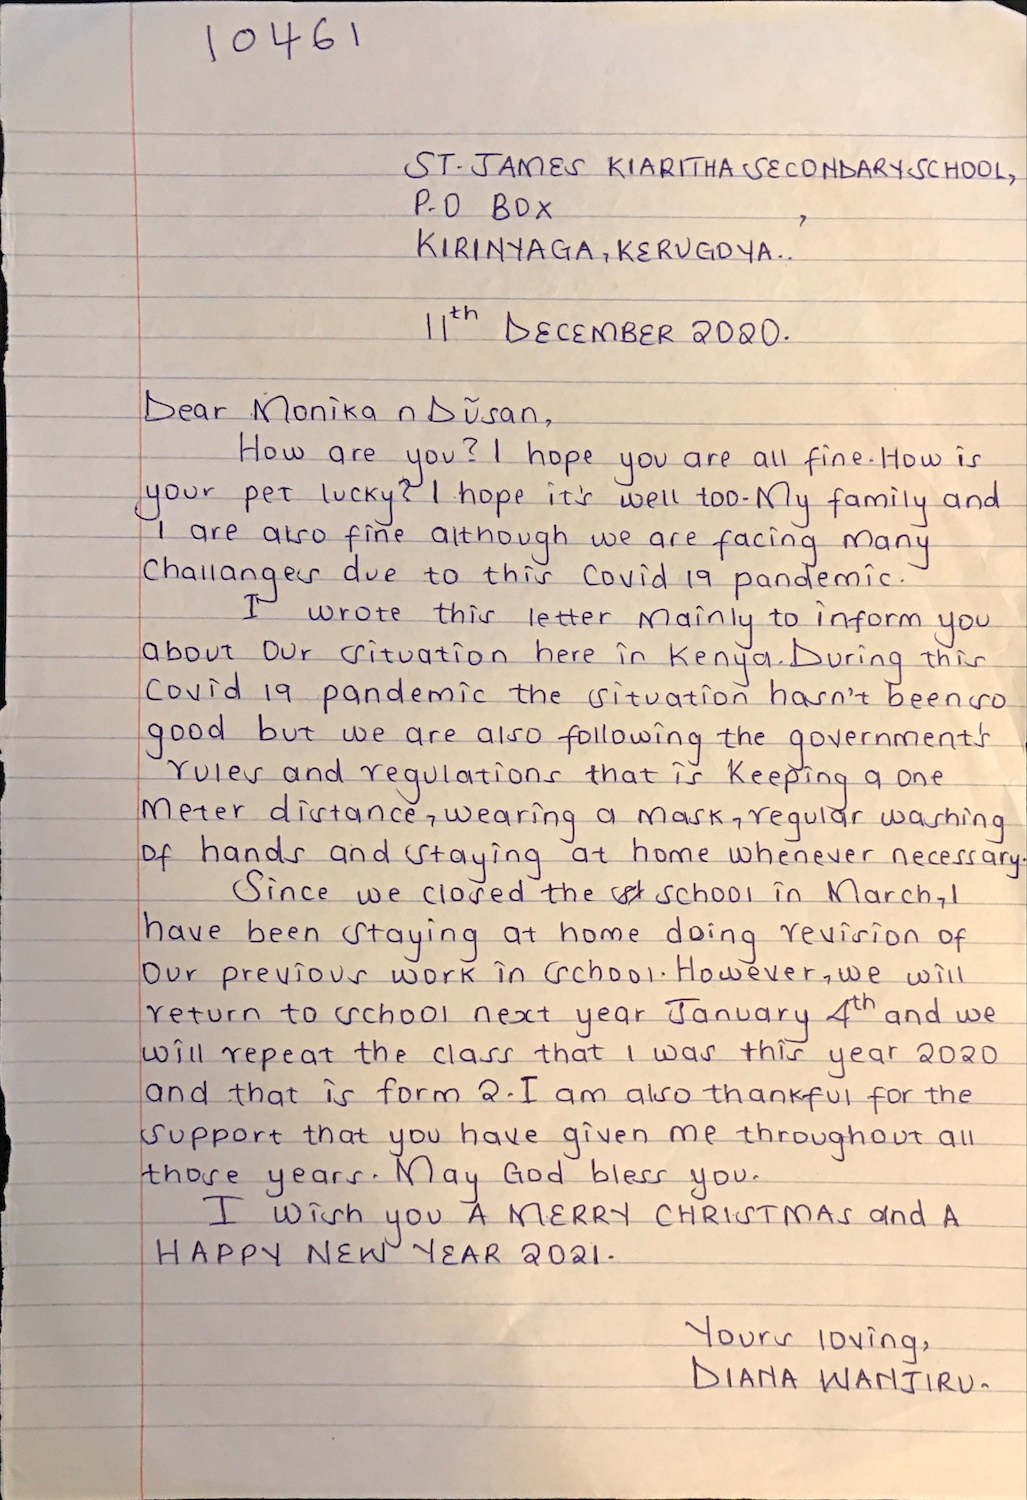 10461
ST. JAMES KIARITHA SECONDARY SCHOOL,
P.O BOX ,
KIRINYAGA, KERUGOYA..
11th DECEMBER 2020.
Dear Monika n Dŭsan,
How are you? I hope you are all fine. How is
your pet lucky? I hope it's well too. My family and
I are also fine although we are facing many
Challanges due to this Covid 19 pandemic.
I wrote this letter Mainly to inform you
about Our situation here in Kenya. During this
Covid 19 pandemic the situation hasn't been so
good but we are also following the government's
rules and regulations that is Keeping a one
Meter distance, wearing a mask, regular washing
of hands and staying at home whenever necessary.
Since we closed the school in March, I
have been staying at home doing revision of
Our previous work in school. However, we will
return to school next year January 4th and we
will repeat the class that I was this year 2020
and that is form 2. I am also thankful for the
support that you have given me throughout all
those years. May God bless you.
I wish you A MERRY CHRISTMAS and A
HAPPY NEW YEAR 2021.
Yours loving,
DIANA WANJIRU.